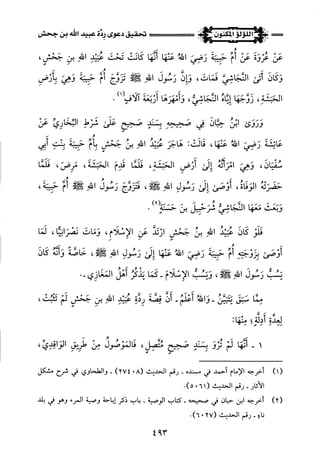 اللؤلؤ المكنون
تحقيق دعوى ردّة عبيد الله بن جحش
عَنْ عُرْوَةَ عَنْ أُمِّ حَبِيبَةَ رَضِيَ اللهُ عَنْهَا أَنَّهَا كَانَتْ تَحْتَ عُبَيْدِ اللهِ بنِ جَحْشٍ،
وَكَانَ أَتَى النَّجَاشِيَّ فَمَاتَ، وَإِنَّ رَسُولَ اللهِ ﷺ تَزَوَّجَ أُمَّ حَبِيبَةَ وَهِيَ بِأَرْضِ
الحَبَشَةِ، زَوَّجَهَا إِيَّاهُ النَّجَاشِيُّ، وَأَمْهَرَهَا أَرْبَعَةَ آلَافٍ(١).
وَرَوَى ابْنُ حِبَّانَ فِي صَحِيحِهِ بِسَنَدٍ صَحِيحٍ عَلَى شَرْطِ البُخَارِيِّ عَنْ
عَائِشَةَ رَضِيَ اللهُ عَنْهَا، قَالَتْ: هَاجَرَ عُبَيْدُ اللهِ بنُ جَحْشٍ بِأُمِّ حَبِيبَةَ بِنْتِ أَبِي
سُفْيَانَ، وَهِيَ امْرَأَتُهُ إِلَى أَرْضِ الحَبَشَةِ، فَلَمَّا قَدِمَ الحَبَشَةَ، مَرِضَ، فَلَمَّا
حَضَرَتْهُ الوَفَاةُ، أَوْصَى إِلَى رَسُولِ اللهِ ﷺ، فَتَزَوَّجَ رَسُولُ اللهِ ﷺ أُمَّ حَبِيبَةَ،
وَبَعَثَ مَعَهَا النَّجَاشِيُّ شُرَحْبِيلَ بنَ حَسَنَةَ(٢).
فَلَوْ كَانَ عُبَيْدُ اللهِ بنُ جَحْشٍ ارْتَدَّ عَنِ الإِسْلَامِ، وَمَاتَ نَصْرَانِيًّا، لَمَا
أَوْصَى بِزَوْجَتِهِ أُمِّ حَبِيبَةَ رَضِيَ اللهُ عَنْهَا إِلَى رَسُولِ اللهِ ﷺ، خَاصَّةً وَأَنَّهُ كَانَ
يَسُبُّ رَسُولَ اللهِ ﷺ، وَيَسُبُّ الإِسْلَامَ ـ كَمَا يَذْكُرُ أَهْلُ المَغَازِي ـ.
مِمَّا سَبَقَ يَتَبَيَّنُ ـ وَاللهُ أَعْلَمُ ـ أَنَّ قِصَّةَ رِدَّةِ عُبَيْدِ اللهِ بنِ جَحْشٍ لَمْ تَثْبُتْ،
لِعِدَّةِ أَدِلَّةٍ؛ مِنْهَا:
١ ـ أَنَّهَا لَمْ تُرْوَ بِسَنَدٍ صَحِيحٍ مُتَّصِلٍ، فَالمَوْصُولُ مِنْ طَرِيقِ الوَاقِدِيِّ،
(١) أخرجه الإمام أحمد في مسنده ـ رقم الحديث (٢٧٤٠٨) ـ والطحاوي في شرح مشكل
الآثار ـ رقم الحديث (٥٠٦١).
(٢) أخرجه ابن حبان في صحيحه ـ كتاب الوصية ـ باب ذكر إباحة وصية المرء وهو في بلد
ناءٍ ـ رقم الحديث (٦٠٢٧).
٤٩٣